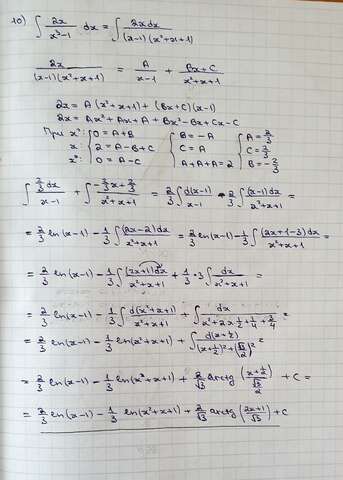 10) ∫ 2x/(x³-1) dx = ∫ 2xdx/((x-1)(x²+x+1))
2x/((x-1)(x²+x+1)) = A/(x-1) + (Bx+C)/(x²+x+1)
2x = A(x²+x+1) + (Bx+C)(x-1)
2x = Ax²+Ax+A+Bx²-Bx+Cx-C
При x²: { 0 = A+B { B = -A { A = 2/3
x: { 2 = A-B+C { C = A { C = 2/3
x⁰: { 0 = A-C { A+A+A = 2 { B = -2/3
∫ (2/3 dx)/(x-1) + ∫ (-2/3x+2/3)/(x²+x+1) = 2/3 ∫ d(x-1)/(x-1) - 2/3 ∫ (x-1)dx/(x²+x+1) =
2/3 ln(x-1) - 1/3 ∫ (2x-2)dx/(x²+x+1) = 2/3 ln(x-1) - 1/3 ∫ (2x+1-3)dx/(x²+x+1) =
= 2/3 ln(x-1) - 1/3 ∫ (2x+1)dx/(x²+x+1) + 1/3 · 3 ∫ dx/(x²+x+1) =
= 2/3 ln(x-1) - 1/3 ∫ d(x²+x+1)/(x²+x+1) + ∫ dx/(x²+2x·1/2+1/4+3/4) =
= 2/3 ln(x-1) - 1/3 ln(x²+x+1) + ∫ d(x+1/2)/((x+1/2)²+(√3/2)²) =
= 2/3 ln(x-1) - 1/3 ln(x²+x+1) + 2/√3 arctg((x+1/2)/(√3/2)) + C =
= 2/3 ln(x-1) - 1/3 ln(x²+x+1) + 2/√3 arctg((2x+1)/√3) + C